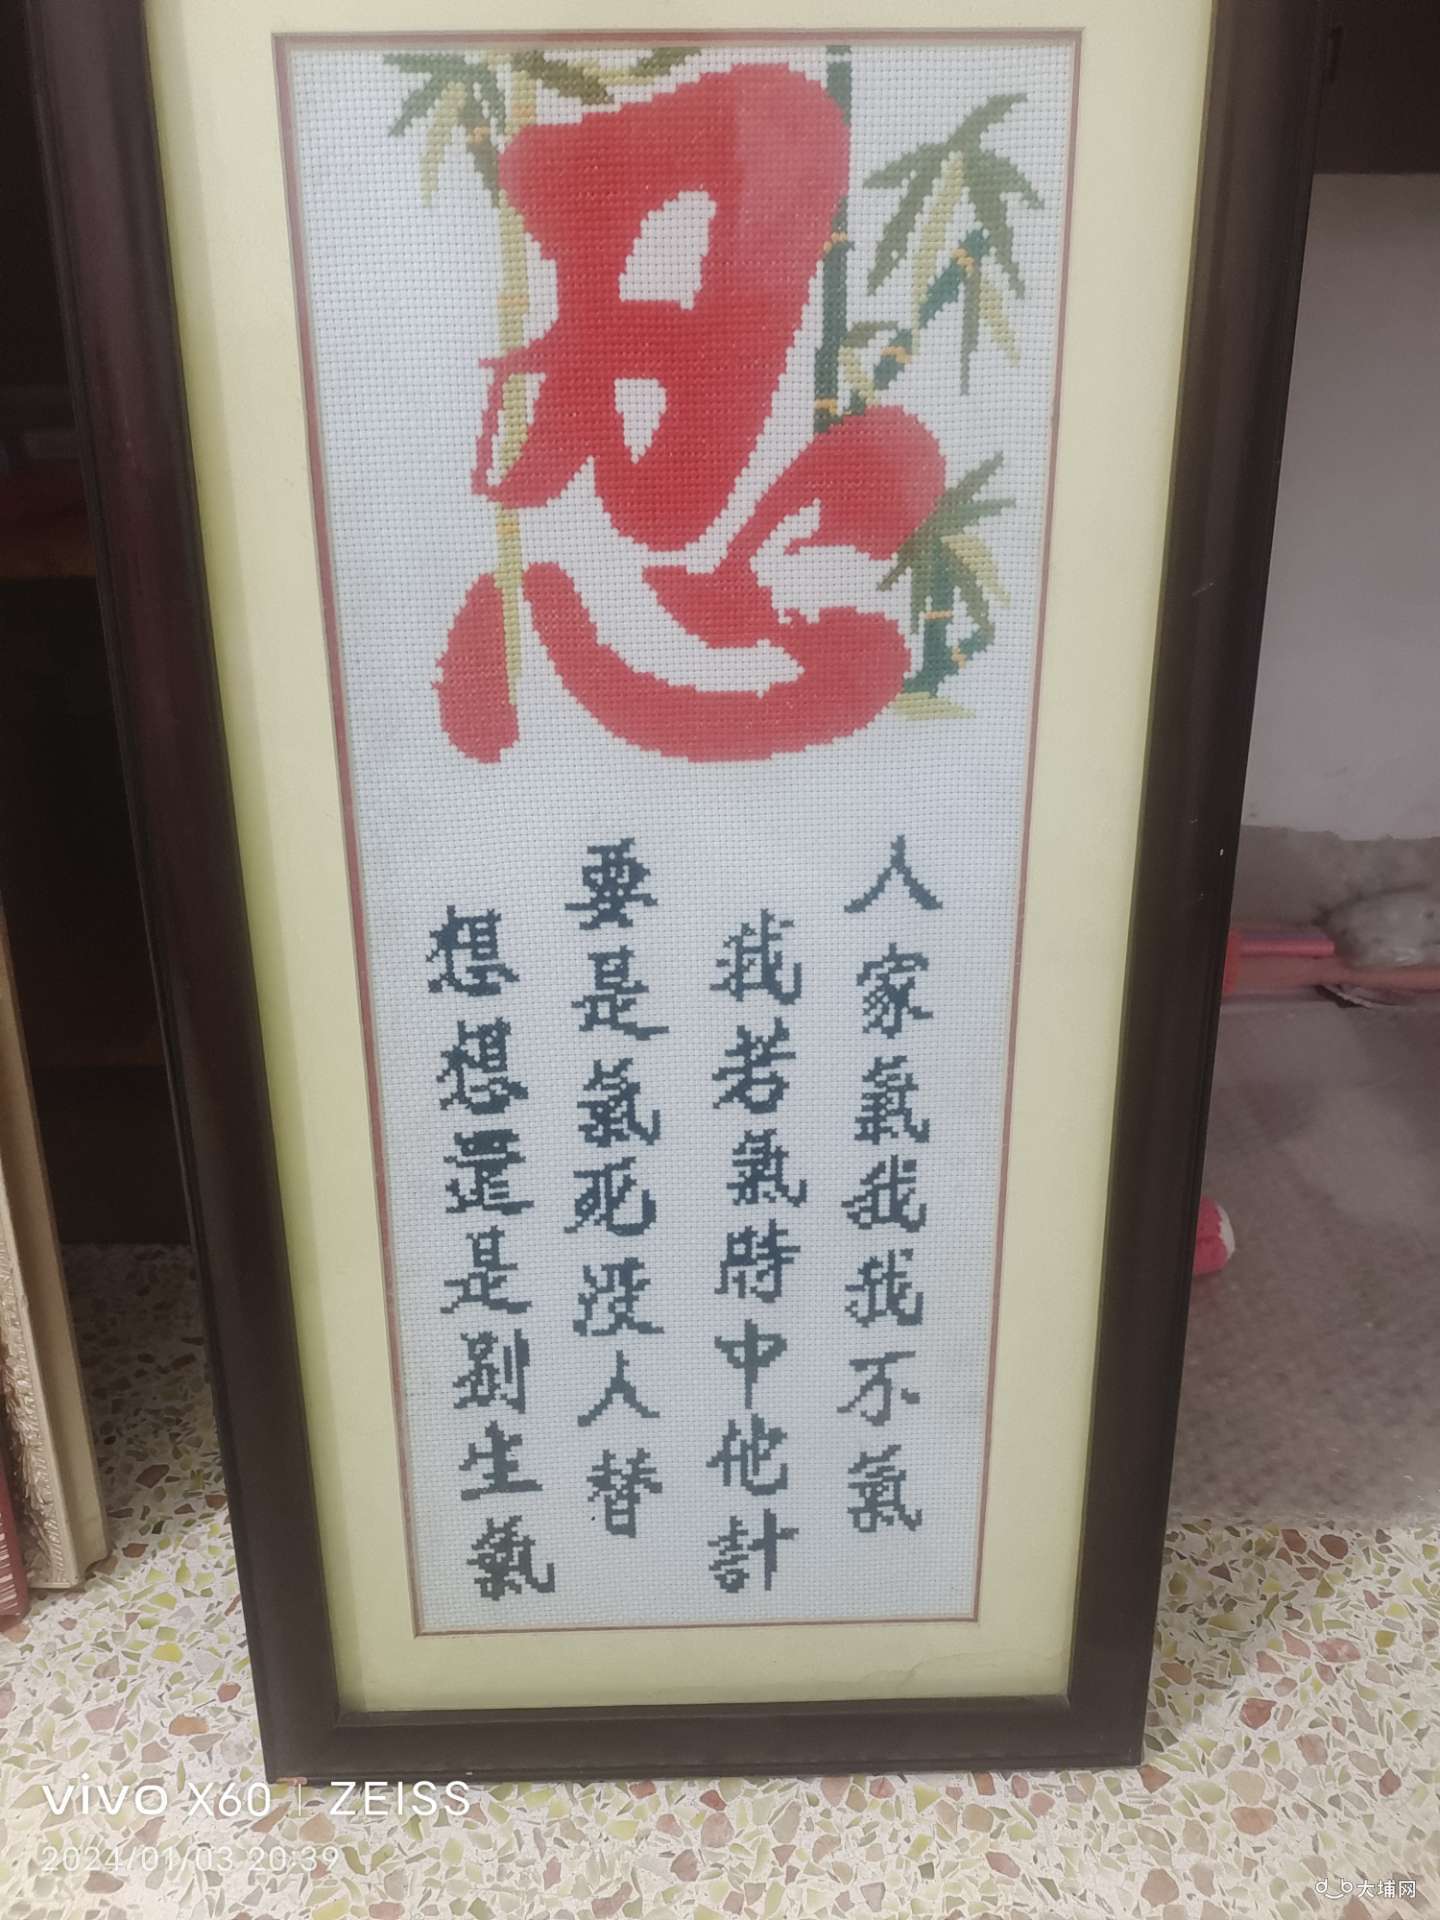 忍
人家氣我我不氣
我若氣時中他計
要是氣死没人替
想想還是别生氣
vivo X60 | ZEISS
2024/01/03 20:39
大埔网